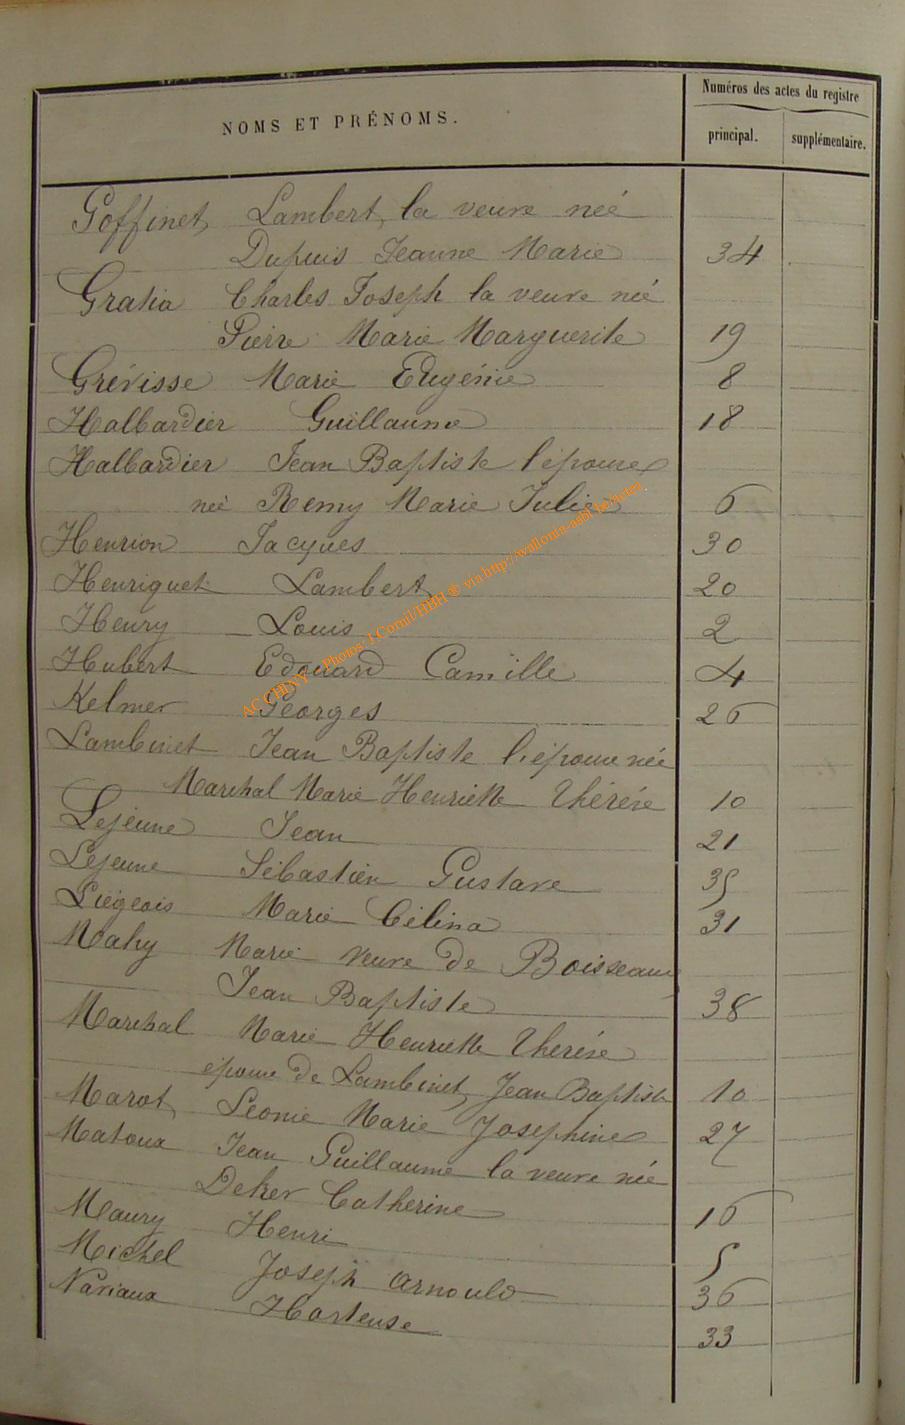 NOMS ET PRÉNOMS.
Numéros des actes du registre
principal. supplémentaire.
Goffinet Lambert, la veuve neé
Dupuis Jeanne Marie 34
Gratia Charles Joseph la veuve neé
Pierre Marie Marguerite 19
Grévisse Marie Eugénie 8
Halbardier Guillaume 18
Halbardier Jean Baptiste l'épouse
neé Remy Marie Julie 6
Henrion Jacques 30
Henriquet Lambert 20
Henry Louis 2
Hubert Edouard Camille 4
Kelmer Georges 26
Lambinet Jean Baptiste l'épouse née
Marchal Marie Henriette Thérése 10
Lejeune Jean 21
Lejeune Sébastien Gustave 35
Liégeois Marie Célina 31
Mahy Marie veuve de Boisseaux
Jean Baptiste 38
Marchal Marie Henriette Thérése
épouse de Lambinet, Jean Baptiste 10
Marot Léonie Marie Joséphine 27
Matoux Jean Guillaume la veuve née
Deker Catherine 16
Maury Henri 5
Michel Joseph Arnould 36
Navaux Hortense 33
AC CHINY - Photos J Cornil/HBH ® via http://wallonia-asbl.be/actes.